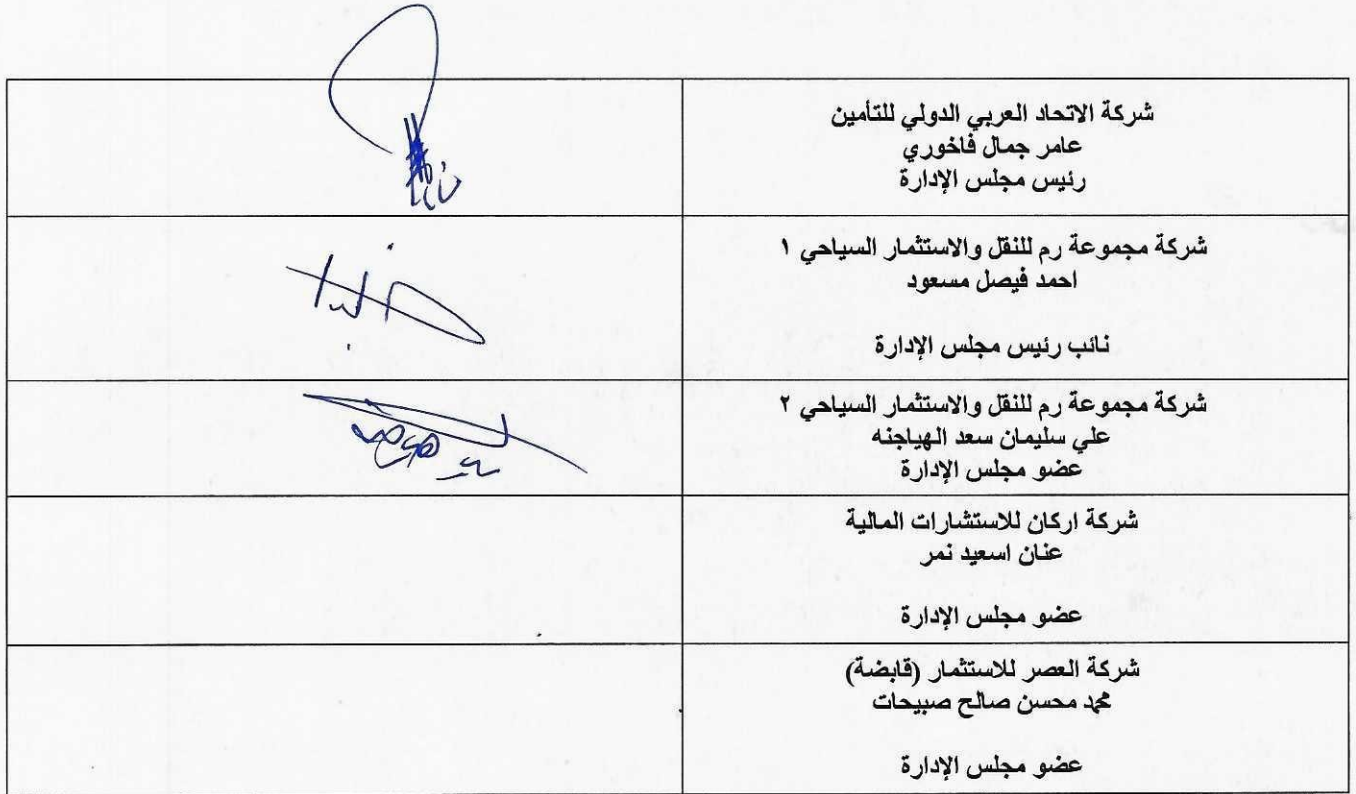 شركة الاتحاد العربي الدولي للتأمين
عامر جمال فاخوري
رئيس مجلس الإدارة
شركة مجموعة رم للنقل والاستثمار السياحي ١
احمد فيصل مسعود
نائب رئيس مجلس الإدارة
شركة مجموعة رم للنقل والاستثمار السياحي ٢
علي سليمان سعد الهياجنه
عضو مجلس الإدارة
شركة اركان للاستشارات المالية
عنان اسعيد نمر
عضو مجلس الإدارة
شركة العصر للاستثمار (قابضة)
محمد محسن صالح صبيحات
عضو مجلس الإدارة